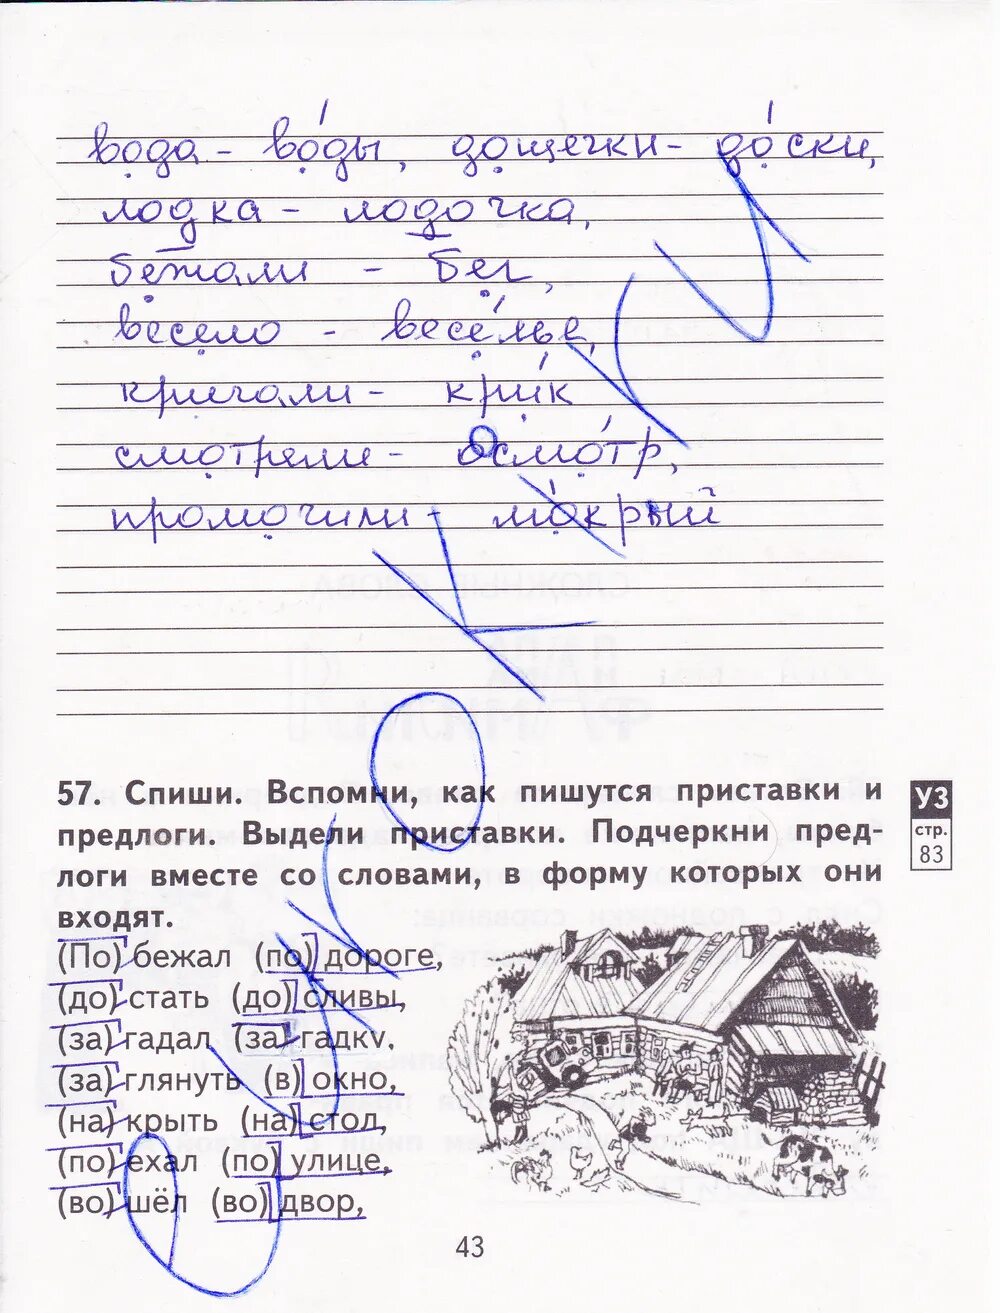 вода - воды, дощечки - доски,
лодка - лодочка,
бежали - бег,
весело - веселье,
кричали - крик
смотрели - осмотр,
промочили - мокрый
57. Спиши. Вспомни, как пишутся приставки и
предлоги. Выдели приставки. Подчеркни пред-
логи вместе со словами, в форму которых они
входят.
УЗ
стр.
83
(По) бежал (по) дороге,
(до) стать (до) сливы,
(за) гадал (за) гадку,
(за) глянуть (в) окно,
(на) крыть (на) стол,
(по) ехал (по) улице,
(во) шёл (во) двор,
43